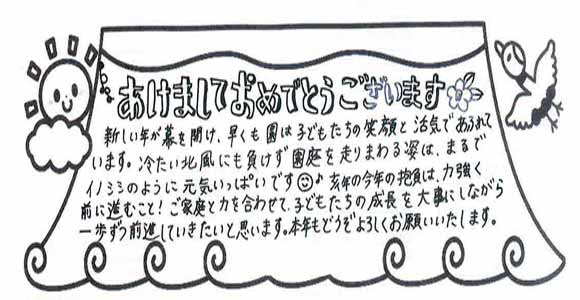 あけましておめでとうございます
新しい年が幕を開け、早くも園は子どもたちの笑顔と活気であふれて
います。冷たい北風にも負けず園庭を走りまわる姿は、まるで
イノシシのように元気いっぱいです♪亥年の今年の抱負は、力強く
前に進むこと！ご家庭と力を合わせて、子どもたちの成長を大事にしながら
一歩ずつ前進していきたいと思います。本年もどうぞよろしくお願いいたします。